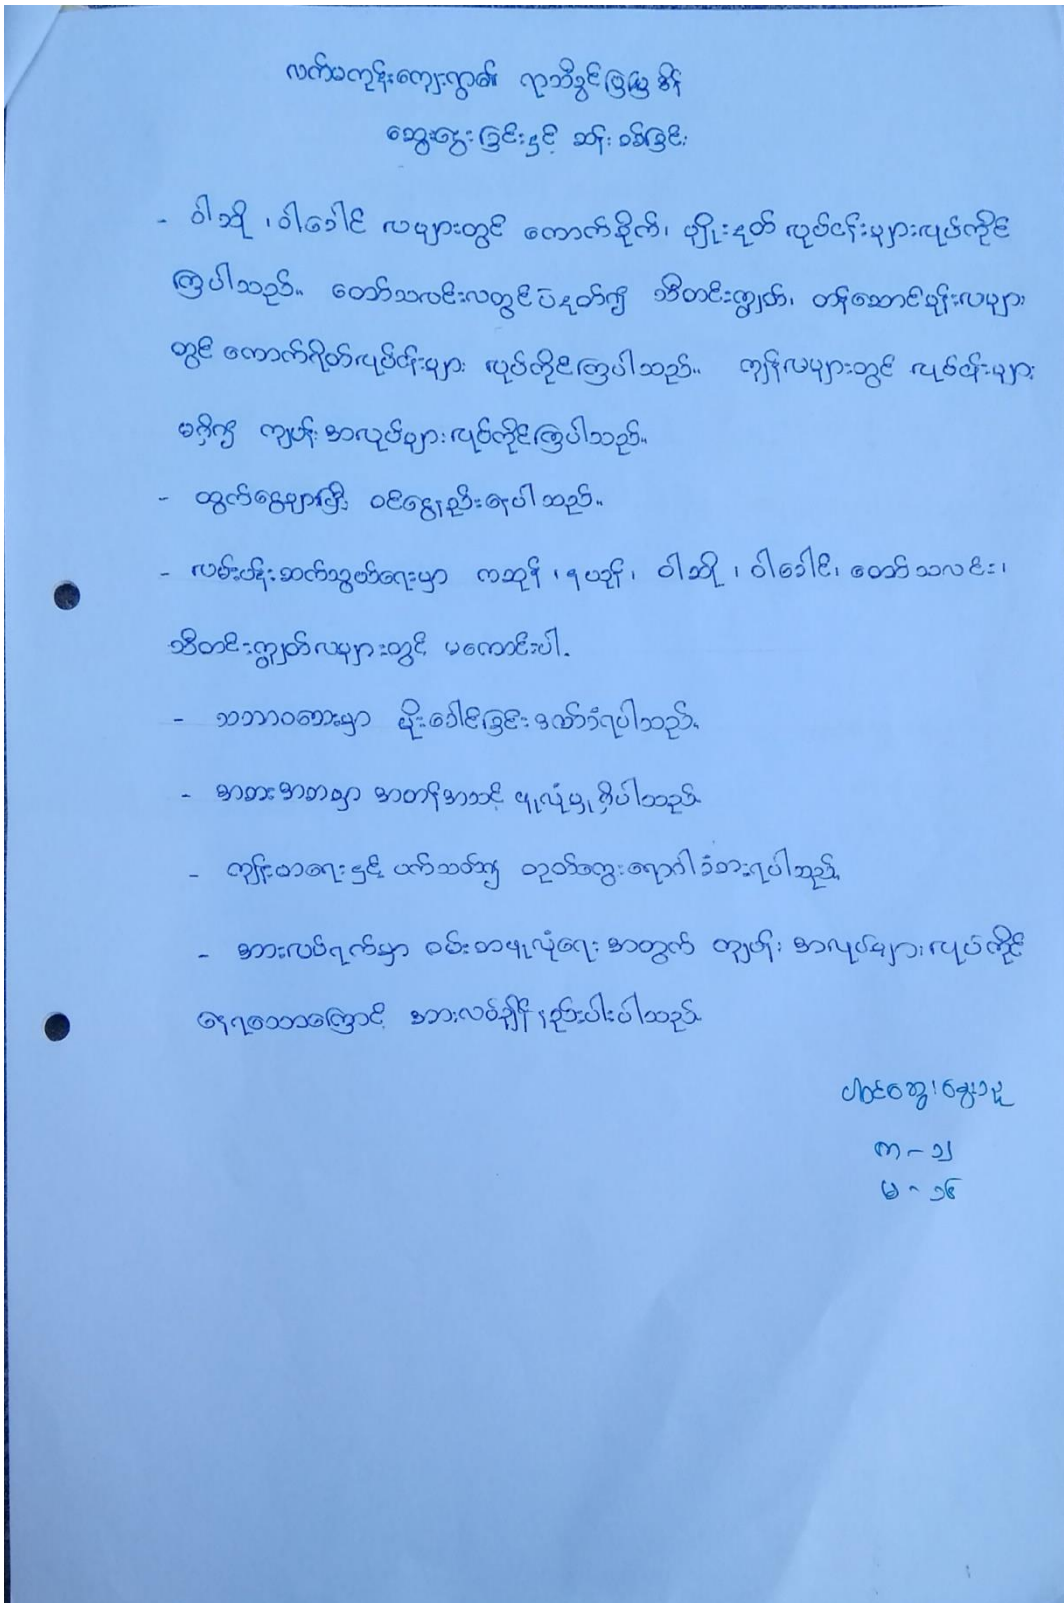 လက်မကုန်းကျေးရွာ၏ ရာသီခွင်ပြမြေစိန်
ဆွေးနွေးခြင်းနှင့် ဆန်းစစ်ခြင်း
- ဝါဆို ၊ ဝါခေါင် လများတွင် ကောက်စိုက်၊ မျိုးနုတ် လုပ်ငန်းများလုပ်ကိုင်
ကြပါသည်။ တော်သလင်းလတွင် ပဲနုတ်၍ သီတင်းကျွတ်၊ တန်ဆောင်မုန်းလများ
တွင် ကောက်ရိတ်လုပ်ငန်းများ လုပ်ကိုင်ကြပါသည်။ ကျန်လများတွင် လုပ်ငန်းများ
မရှိ၍ ကျပန်းအလုပ်များ လုပ်ကိုင်ကြပါသည်။
- ထွက်ငွေများပြီး ဝင်ငွေနည်းနေပါသည်။
- လမ်းပန်းဆက်သွယ်ရေးမှာ ကဆုန် ၊ နယုန် ၊ ဝါဆို ၊ ဝါခေါင်၊ တော်သလင်း၊
သီတင်းကျွတ်လများတွင် မကောင်းပါ.
- သဘာဝဘေးမှာ မိုးခေါင်ခြင်းဒဏ်ခံရပါသည်.
- အစားအစာမှာ အတန်အသင့် ဖူလုံမှုရှိပါသည်.
- ကျန်းမာရေးနှင့် ပက်သတ်၍ တုတ်ကွေးရောဂါခံစားရပါသည်.
- အားလပ်ရက်မှာ ဝမ်းစာဖူလုံရေး အတွက် ကျပန်း အလုပ်များ လုပ်ကိုင်
နေရသောကြောင့် အားလပ်ချိန်နည်းပါးပါသည်.
ပါဝင်ဆွေးနွေးသူ
ကာ - ၁၂
မ - ၁၆